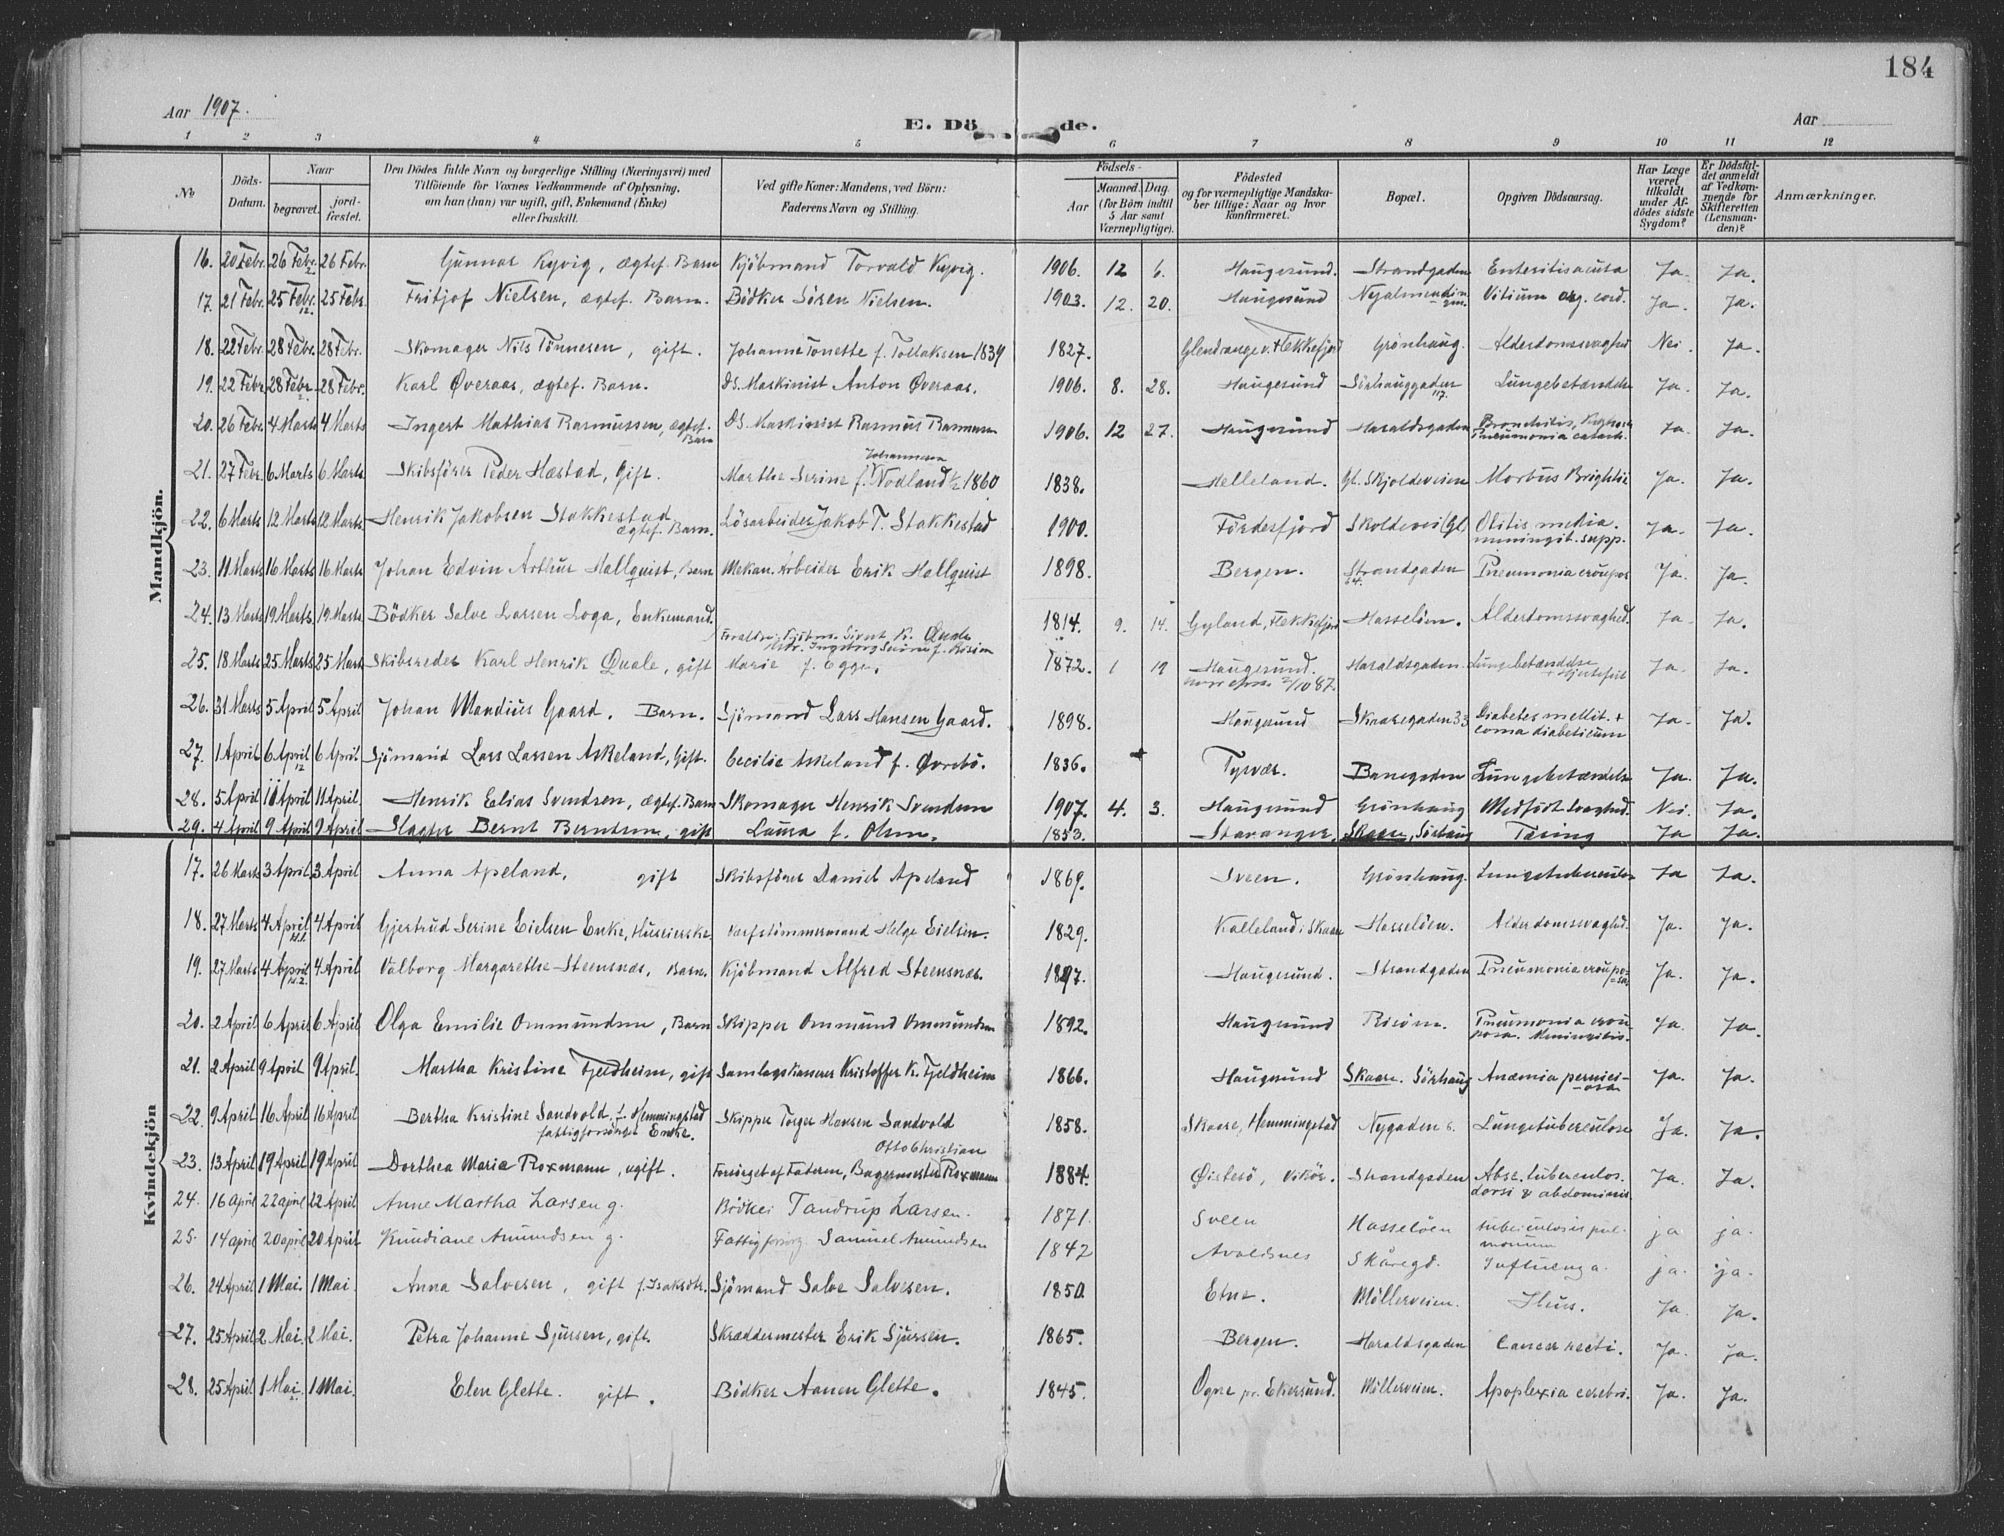 184
Aar 1907.
E. Dö de.
Aar
1 2 3 4 5 6 7 8 9 10 11 12
No
Döds-Datum.
Naar
begravet.
jord-fæstet.
Den Dödes fulde Navn og borgerlige Stilling (Næringsvei) med Tilföiende for Voxnes Vedkommende af Oplysning, om han (hun) var ugift, gift, Enkemand (Enke) eller fraskilt.
Ved gifte Koner: Mandens, ved Börn: Faderens Navn og Stilling.
Födsels-
Aar
Maaned. Dag.
(for Börn indtil 5 Aar samt Værnepligtige).
Födested og for værnepligtige Mandskaber tillige: Naar og hvor konfirmeret.
Bopæl.
Opgiven Dödsaarsag.
Har Læge været tilkaldt under Afdödes sidste Sygdom?
Er Dödsfaldet anmeldt af Vedkommende for Skifteretten (Lensmanden)?
Anmærkninger.
Mandkjön.
16. 20 Febr. 26 Febr. 26 Febr. Gunnar Kyvig, ægtef. Barn Kjöbmand Torvald Kyvig. 1906. 12 6. Haugesund. Strandgaden Enteritis acuta Ja. Ja.
17. 21 Febr. 25 Febr. 25 Febr. Fritjof Nielsen, ægtef. Barn. Bödker Sören Nielsen. 1903. 12. 20. Haugesund Vitium org. cord. Ja. Ja.
18. 22 Febr. 28 Febr. 28 Febr. Skomager Nils Tönnesen, gift. Johanne Tonette f. Tollaksen 1839 1827. Flekkefjord Grönhaug. Alderdomssvaghed Nei. Ja.
19. 22 Febr. 28 Febr. 28 Febr. Karl Øveraas, ægtef. Barn. DS. Maskinist Anton Øveraas. 1906. 8. 28. Haugesund Sörhauggaden 117. Lungebetændelse Ja. Ja.
20. 26 Febr. 4 Marts 4 Marts Ingert Mathias Rasmussen, ægtef. Barn DS. Maskinist Rasmus Rasmussen 1906. 12 27. Haugesund Haraldsgaden Bronchitis, Pneumonia catarrh. Ja. Ja.
21. 27 Febr. 6 Marts 6 Marts Skibsförer Peder Hæstad, Gift. Marthe Serine f. Johannesen Nodland 1860 1838. Helleland. Gl. Skjoldeveien Morbus Brightii Ja. Ja.
22. 6 Marts 12 Marts 12 Marts Henrik Jakobsen Stakkestad ægtef. Barn. Lösarbeider Jakob T. Stakkestad 1900. Fördesfjord Skoldevei (Gl Otitis media. meningit. supp. Ja. Ja.
23. 11 Marts 16 Marts 16 Marts Johan Edvin Arthur Hallquist, Barn Mekan. Arbeider Erik Hallquist 1898. Bergen. Strandgaden 64. Pneumonia croupos Ja. Ja.
24. 13 Marts 19 Marts 19 Marts Bödker Salve Larsen Loga, Enkemand. 1814. 9. 14. Gyland, Flekkefjord Hasselöen. Alderdomssvaghed. Ja. Ja.
25. 18 Marts 25 Marts 25 Marts Skibsreder Karl Henrik Qvale, gift Marie f. Egge. 1872. 1 19 Haugesund. 2/10 87. Haraldsgaden. Lungebetændelse + Hjertefeil Ja. Ja.
26. 31 Marts 5 April 5 April Johan Mandius Gaard. Barn. Sjömand Lars Hansen Gaard. 1898. Haugesund Skaaregaden 33 Diabetes mellit. + coma diabeticum Ja. Ja.
27. 1 April 6 April 6 April Sjömand Lars Larsen Askeland, Gift. Cecilie Askeland f. Övrebö. 1836. Tysvær. Banegaden Lungebetændelse Ja. Ja.
28. 5 April 11 April 11 April Henrik Elias Svendsen, ægtef. Barn Skomager Henrik Svendsen 1907. 4. 3. Haugesund Grönhaug Medfödt Svaghed. Nei. Ja.
29. 4 April 9 April 9 April Slagter Bernt Berntsen, gift Laura f. Olsen. 1853. Stavanger. Skaare, Sörhaug Tæring Ja Ja.
Kvindekjön
17. 26 Marts 3 April 3 April Anna Apeland, gift Skibsförer Daniel Apeland 1869. Sveen. Grönhaug. Lungetuberculos Ja Ja.
18. 27 Marts 4 April 4 April Gjertrud Serine Eielsen Enke, Huseierske. Værfstömmermand Helge Eielsen. 1829. Kalleland i Skaare Hasselöen. Alderdomssvaghed. Ja. Ja.
19. 27 Marts 4 April 4 April Valborg Margarethe Steensnæs, Barn. Kjöbmand Alfred Steensnæs. 1897. Haugesund. Strandgaden Pneumonia croupo-sa Ja. Ja.
20. 2 April 6 April 6 April Olga Emilie Ommundsen, Barn Skipper Ommund Ommundsen 1892. Haugesund Risöen. Pneumonia crouposa. Meningitis. Ja. Ja.
21. 2 April 9 April 9 April Martha Kristine Fjeldheim, gift Samlagskasserer Kristoffer K. Fjeldheim 1866. Haugesund Skaare. Sörhaug Anæmia pernici-osa Ja. Ja.
22. 9 April 16 April 16 April Bertha Kristine Sandvold f. Hemmingstad fattigforsörget Enke. Skipper Torger Hansen Sandvold 1858. Skaare, Hemmingstad Nygaden 6. Lungetuberculose Ja. Ja.
23. 13 April 19 April 19 April Dorthea Marie Roxmann, ugift. Forsörget af Faderen, Bagermester Otto Christian Roxmann 1884. Øistesö, Vikör. Strandgaden Absc. tuberculos. dorsi & abdominis Ja. Ja.
24. 16 april 22 april 22 April Anne Martha Larsen g. Bödker Tandrup Larsen. 1871. Sveen Hasselöen tuberculosis pulmonum ja ja.
25. 14 april 20 april 20 April Kundiane Amundsen g. Fattigforsörg. Samuel Amundsen 1842 Avaldsnes Skåregd. Influenza. ja. ja.
26. 24 April 1 Mai. 1 Mai. Anna Salvesen, gift f. Isaksdtr. Sjömand Salve Salvesen. 1850 Etne. Möllerveien. Ileus. Ja. Ja.
27. 25 April 2 Mai. 2 Mai. Petra Johanne Sjursen, gift. Skræddermester Erik Sjursen. 1865. Bergen. Haraldsgaden Cancer recti. Ja. Ja.
28. 25 April 1 Mai. 1 Mai. Elen Glette. gift. Bödker Aanen Glette. 1845. Ogne pr. Ekersund. Möllerveien. Apoplexia cerebri. Ja. Ja.